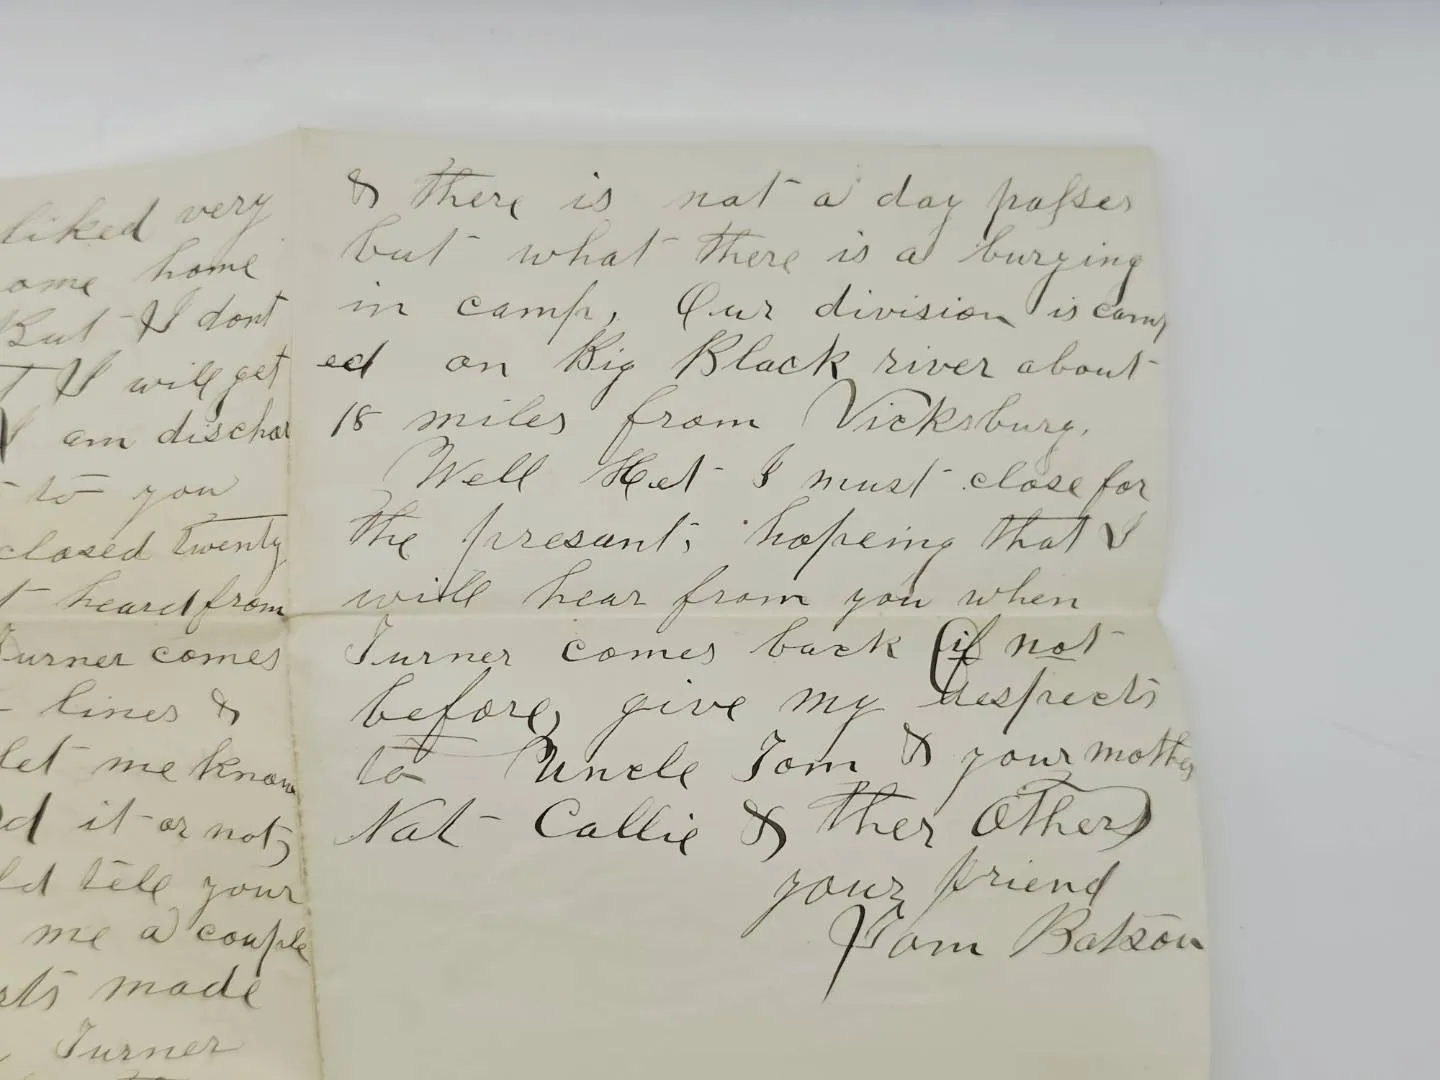 liked very
ome home
But I dont
t I will get
I am dischar
to you
closed twenty
t heard from
Turner comes
lines &
let me know
d it or not,
ld tell your
me a couple
rts made
Turner
& there is not a day passes
but what there is a burying
in camp, Our division is camp
ed on Big Black river about
18 miles from Vicksburg.
Well Het I must close for
the presant; hopeing that I
will hear from you when
Turner comes back (if not
before, give my respects
to Uncle Tom & your mother
Nat Callie & ther Others
your friend
Tom Batson